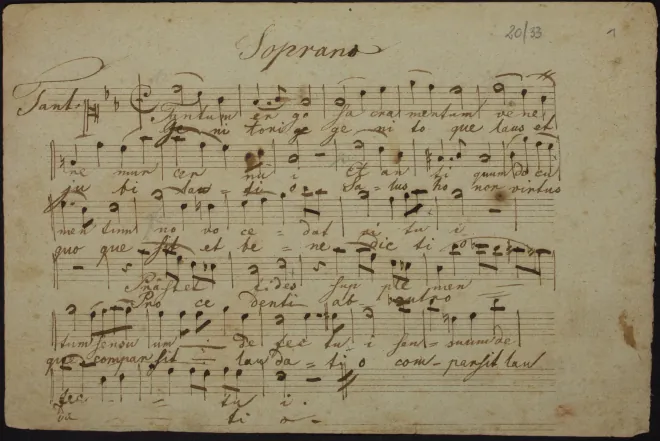 20/33 1
Soprano
Tant:
Tantum er go Sa cra mentum ve ne
ge ni tori ge ge ni to que laus et
re mur cer nu i et an ti quum do cu
ju bi lau = ti o Sa = lus ho nor virtus
men tum no vo ce = dat ri tu i
quo que sit et be = ne = dic ti = o
Præstet fides sup ple men
Pro ce denti ab utro
tum sensu um i de fec tu i sen = suum de
que compar sit lau da = ti o com = parsit lau
fec - - tu i.
da ti o -